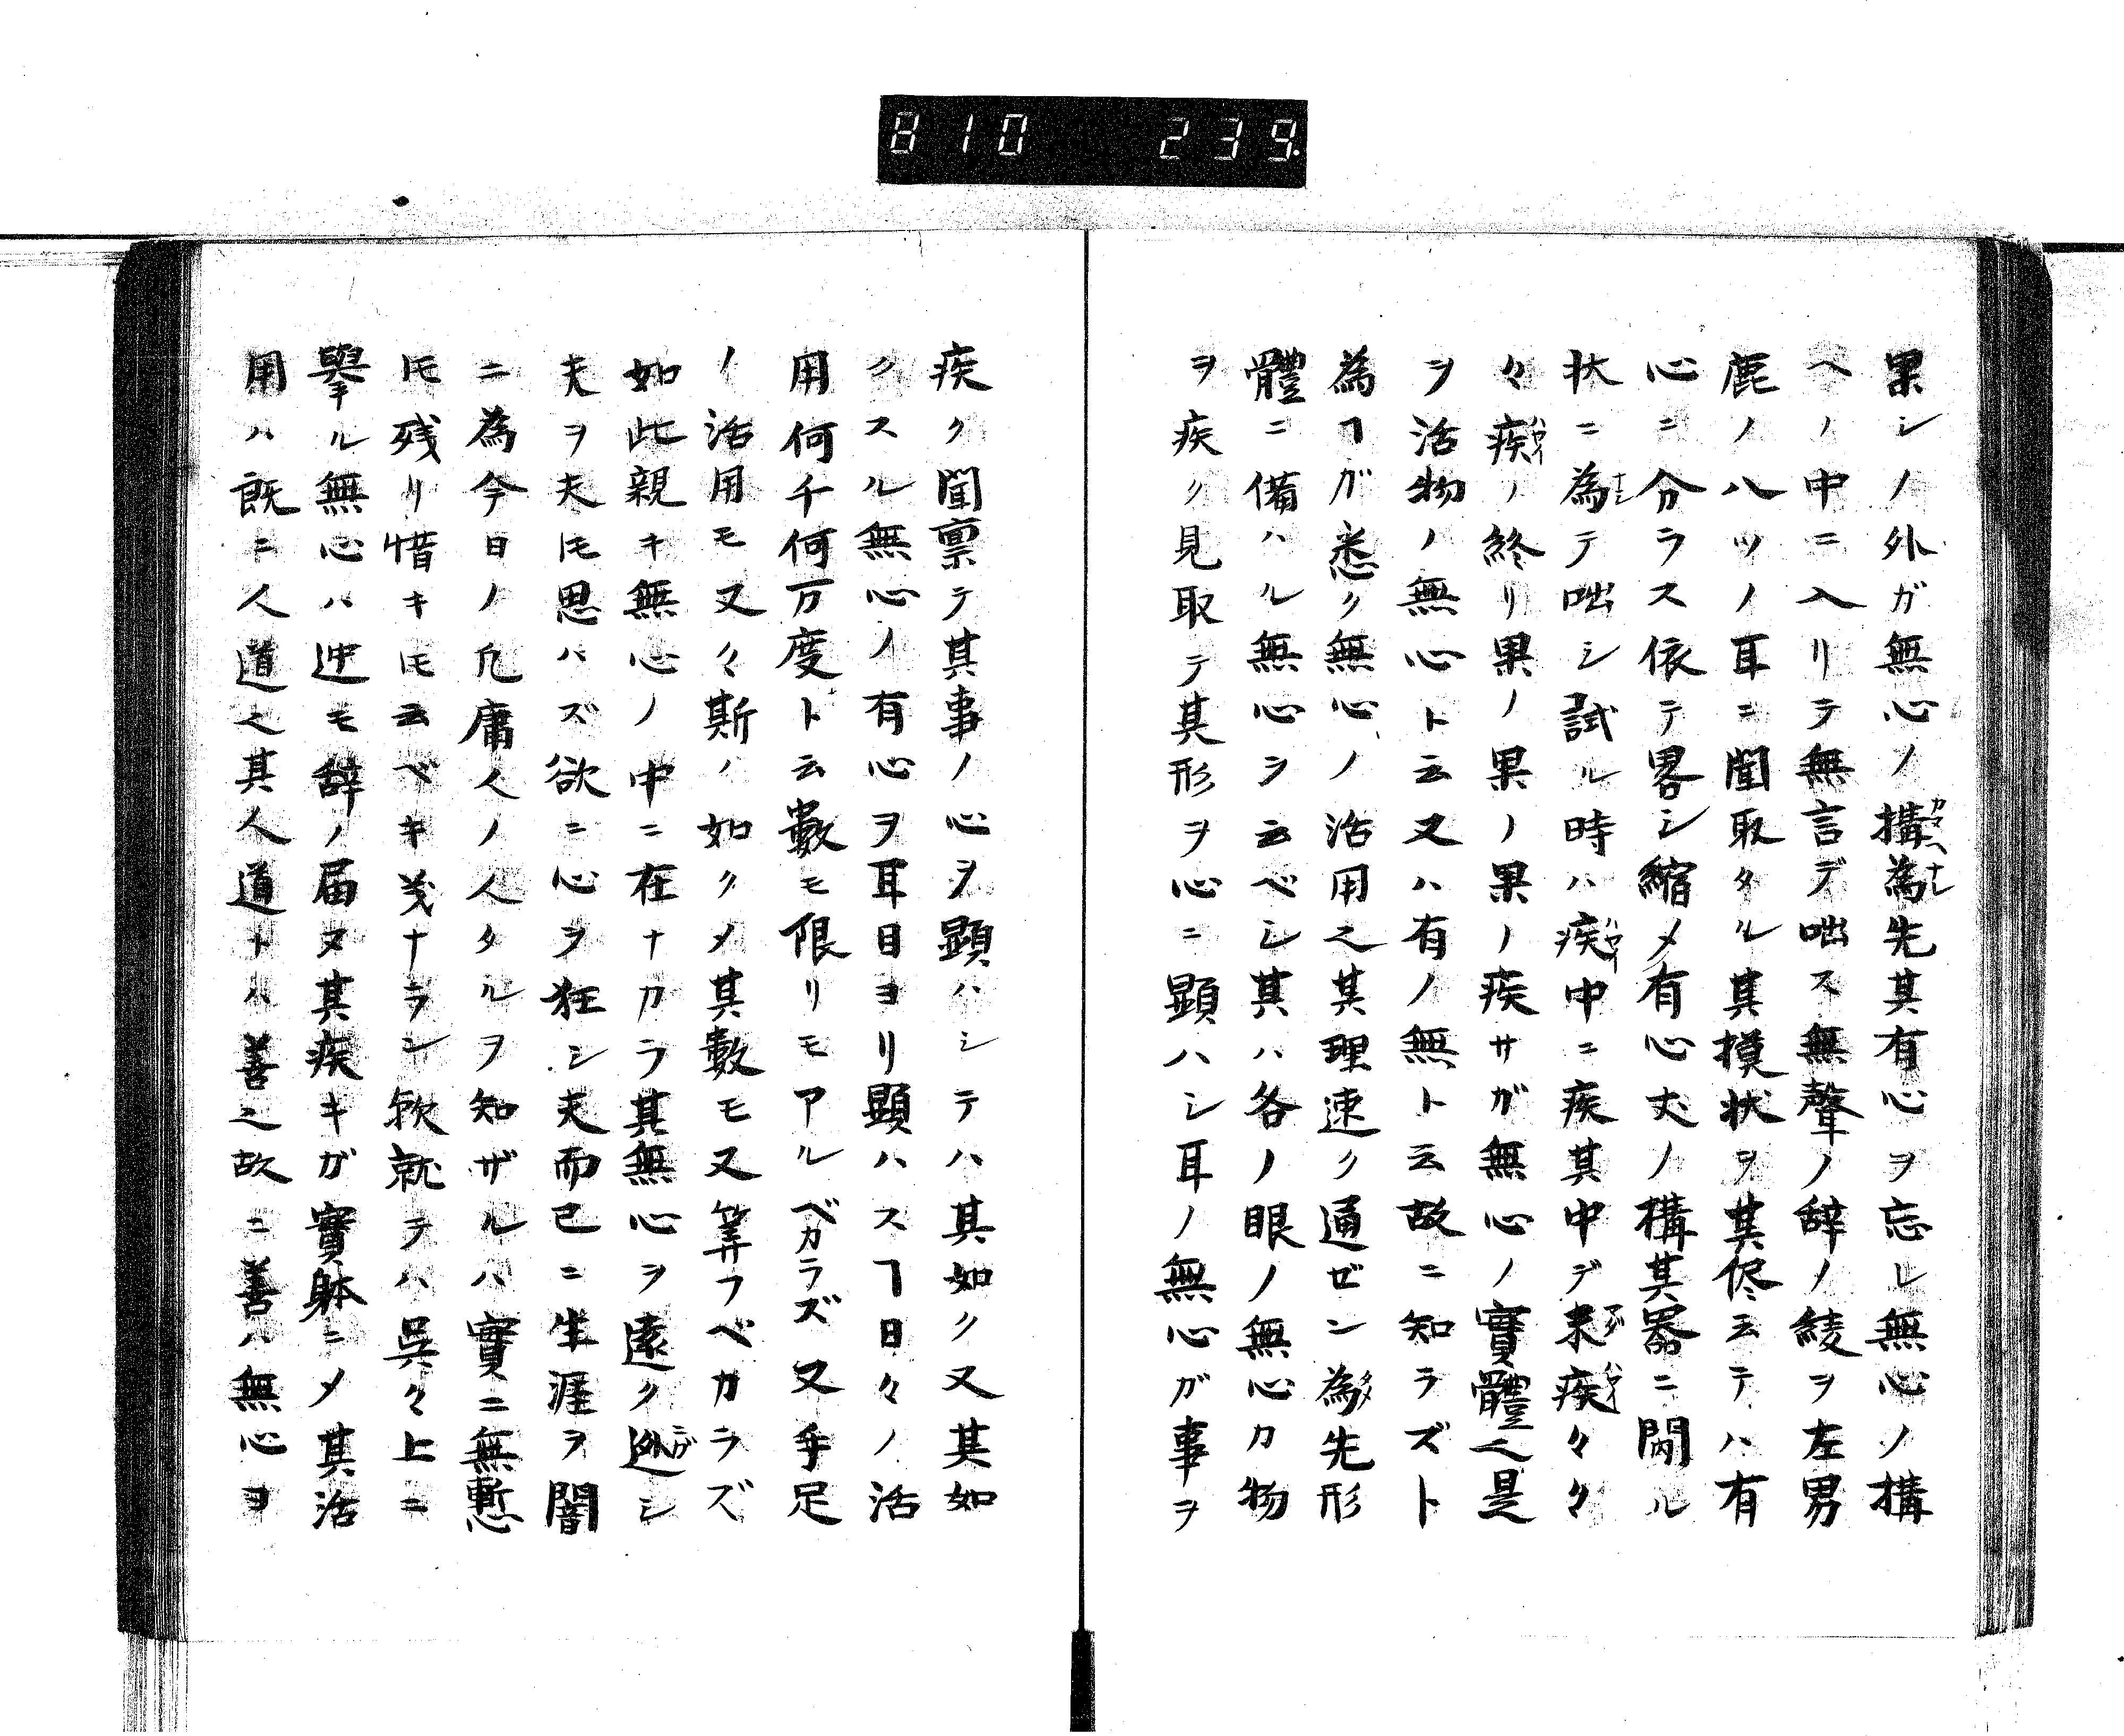 810 239
果シノ外ガ無心ノ構為先其有心ヲ忘レ無心ノ構
ヘノ中ニ入リテ無言デ咄ス無聲ノ辞ノ綾ヲ左男
鹿ノ八ツノ耳ニ聞取タル其摸状ヲ其侭云テハ有
心ニ分ラス依テ畧シ縮メ有心丈ノ構其器ニ関ル
状ニ為テ咄シ試ル時ハ疾中ニ疾其中デ未疾々々
々疾ノ終リ果ノ果ノ果ノ疾サガ無心ノ實體之是
ヲ活物ノ無心ト云又ハ有ノ無ト云故ニ知ラズト
為ヿガ悉ク無心ノ活用之其理速ク通ゼン為先形
體ニ備ハル無心ヲ云ベシ其ハ各ノ眼ノ無心カ物
ヲ疾ク見取テ其形ヲ心ニ顕ハシ耳ノ無心ガ事ヲ
疾ク聞禀テ其事ノ心ヲ顕ハシテハ其如ク又其如
クスル無心ノ有心ヲ耳目ヨリ顕ハスヿ日々ノ活
用何千何万度ト云數モ限リモアルベカラズ又手足
ノ活用モ又々斯ノ如クメ其數モ又筭フベカラズ
如此親キ無心ノ中ニ在ナカラ其無心ヲ遠ク迯シ
夫ヲ夫𪜈思ハズ欲ニ心ヲ狂シ夫而已ニ生涯ヲ闇
ニ為今日ノ凢庸人ノ人タルヲ知ザルハ實ニ無慙
𪜈残リ惜キ𪜈云ベキ乎ナラン歟就テハ呉々上ニ
擧ル無心ハ迚モ辞ノ届ヌ其疾キガ實躰ニメ其活
用ハ既ニ人道之其人道トハ善之故ニ善ハ無心ヲ